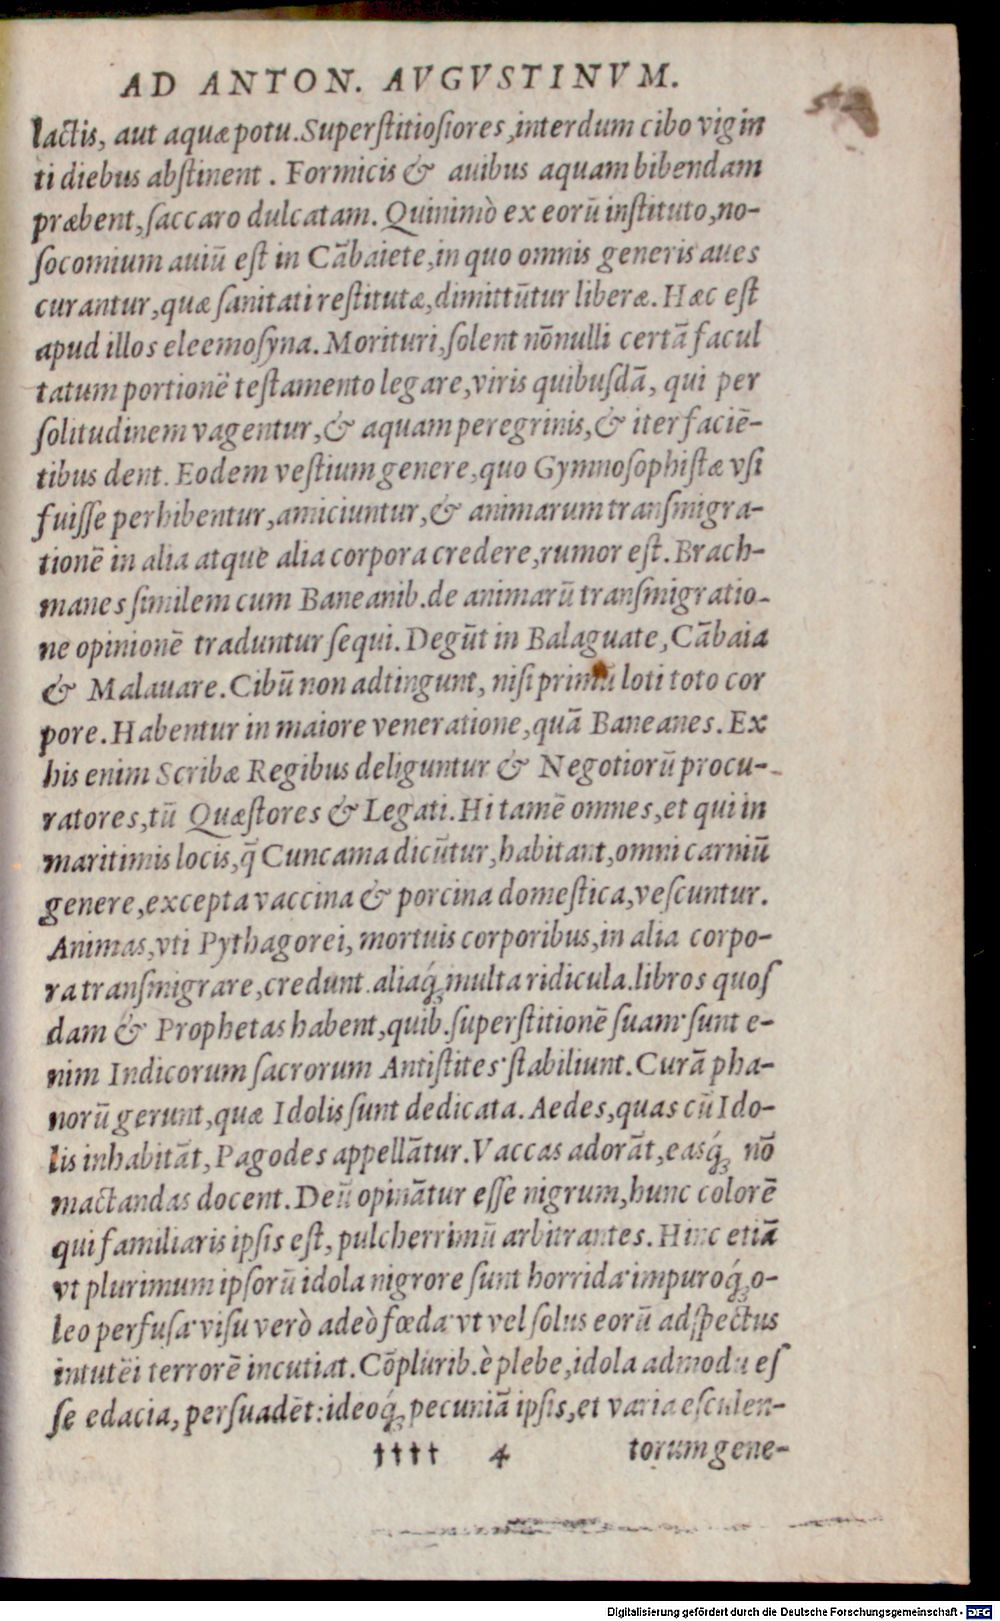 AD ANTON. AVGVSTINVM.
lactis, aut aquæ potu. Superſtitioſiores, interdum cibo vigin
ti diebus abſtinent. Formicis & auibus aquam bibendam
præbent, ſaccaro dulcatam. Quinimò ex eorū inſtituto, no-
ſocomium auiū eſt in Cābaiete, in quo omnis generis aues
curantur, quæ ſanitati reſtitutæ, dimittūtur liberæ. Hæc eſt
apud illos eleemoſyna. Morituri, ſolent nōnulli certā facul
tatum portionē teſtamento legare, viris quibuſdā, qui per
ſolitudinem vagentur, & aquam peregrinis, & iter faciē-
tibus dent. Eodem veſtium genere, quo Gymnoſophiſtæ vſi
fuiſſe perhibentur, amiciuntur, & animarum tranſmigra-
tionē in alia atque alia corpora credere, rumor eſt. Brach-
manes ſimilem cum Baneanib. de animarū tranſmigratio-
ne opinionē traduntur ſequi. Degūt in Balaguate, Cābaia
& Malauare. Cibū non adtingunt, niſi primū loti toto cor
pore. Habentur in maiore veneratione, quā Baneanes. Ex
his enim Scribæ Regibus deliguntur & Negotiorū procu-
ratores, tū Quæſtores & Legati. Hi tamē omnes, et qui in
maritimis locis, q̄ Cuncama dicūtur, habitant, omni carniū
genere, excepta vaccina & porcina domeſtica, veſcuntur.
Animas, vti Pythagorei, mortuis corporibus, in alia corpo-
ra tranſmigrare, credunt. aliaq́; multa ridicula. libros quoſ
dam & Prophetas habent, quib. ſuperſtitionē ſuam· ſunt e-
nim Indicorum ſacrorum Antiſtites· ſtabiliunt. Curā pha-
norū gerunt, quæ Idolis ſunt dedicata. Aedes, quas cū Ido-
lis inhabitāt, Pagodes appellātur. Vaccas adorāt, easq́; nō
mactandas docent. Deū opinātur eſſe nigrum, hunc colorē
qui familiaris ipſis eſt, pulcherrimū arbitrantes. Hinc etiā
vt plurimum ipſorū idola nigrore ſunt horrida· impuroq́; o-
leo perfuſa· viſu verò adeò fœda· vt vel ſolus eorū adſpectus
intutēi terrorē incutiat. Cōplurib. è plebe, idola admodū eſ
ſe edacia, perſuadēt: ideoq́; pecuniā ipſis, et varia eſculen-
†††† 4 torum gene-
Digitalisierung gefördert durch die Deutsche Forschungsgemeinschaft - DFG